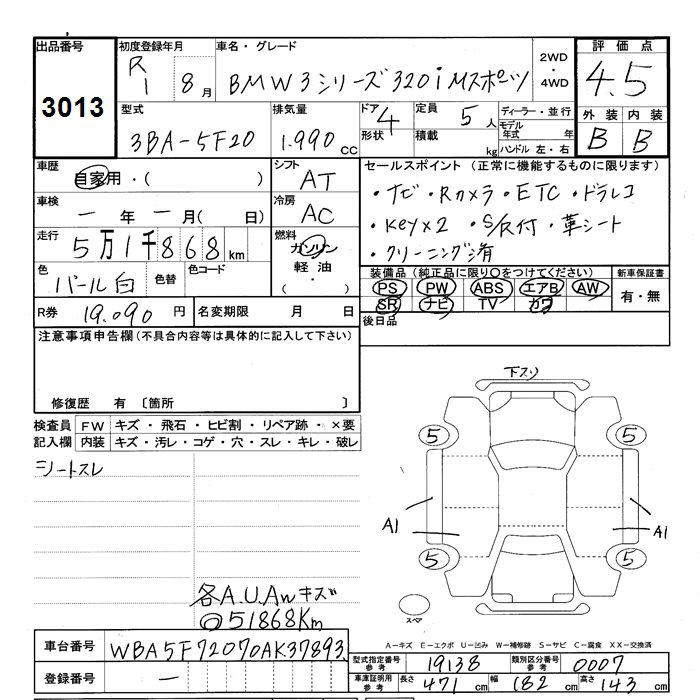 出品番号 初度登録年月 車名・グレード 2WD・4WD 評価点
3013 R1 8月 BMW3シリーズ320i Mスポーツ 4.5
型式 排気量 ドア 4 形状 定員 5人 積載 kg ディーラー・並行 モデル年式 年式 ハンドル 左・右 外装 内装
3BA-5F20 1.990cc B B
車歴 自家用・( ) シフト AT
セールスポイント (正常に機能するものに限ります)
・ナビ ・Rカメラ ・ETC ・ドラレコ
・Key×2 ・S/R付 ・革シート
・クリーニング済
車検 ー年 ー月( 日) 冷房 AC
走行 5万1千868km 燃料 ガソリン 軽油・
色 パール白 色替 色コード
装備品(純正品に限り○をつけてください) 新車保証書
PS PW ABS エアB AW 有・無
SR ナビ TV カワ
R券 19.090円 名変期限 月 日
後日品
注意事項申告欄(不具合内容等は具体的に記入して下さい)
修復歴 有 〔箇所 〕
検査員記入欄 FW キズ・飛石・ヒビ割・リペア跡・×要
内装 キズ・汚レ・コゲ・穴・スレ・キレ・破レ
シートスレ
下スリ
5 5
A1 A1
5 5
スペア
各A.U.AWキズ
51868Km
A-キズ E-エクボ U-凹み W-補修跡 S-サビ C-腐食 XX-交換済
車台番号 WBA5F72070AK37893
型式指定番号 参考 19138 類別区分番号 参考 0007
登録番号 ー
車庫証明用 参考 長さ 471cm 幅 182cm 高さ 143cm